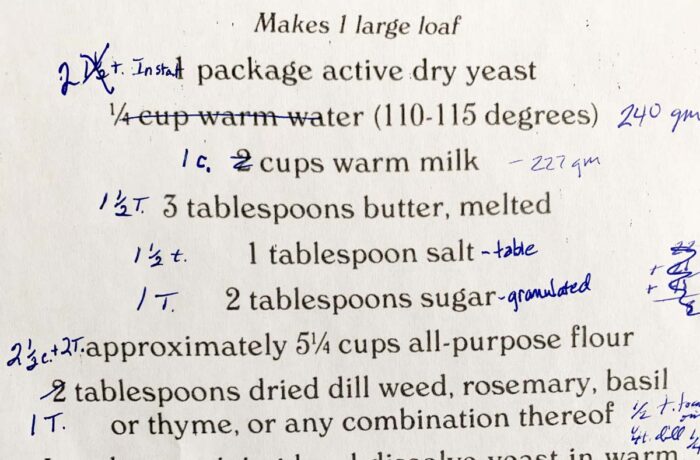 Makes 1 large loaf
2 t. Instant 1 package active dry yeast
¼ cup warm water (110-115 degrees) 240 gm
1 c. 2 cups warm milk - 227 gm
1 ½ T. 3 tablespoons butter, melted
1 ½ t. 1 tablespoon salt - table
1 T. 2 tablespoons sugar - granulated
2 ½ c. + 2 T. approximately 5¼ cups all-purpose flour
2 tablespoons dried dill weed, rosemary, basil
1 T. or thyme, or any combination thereof ½ t.
dill
dissolve yeast in warm